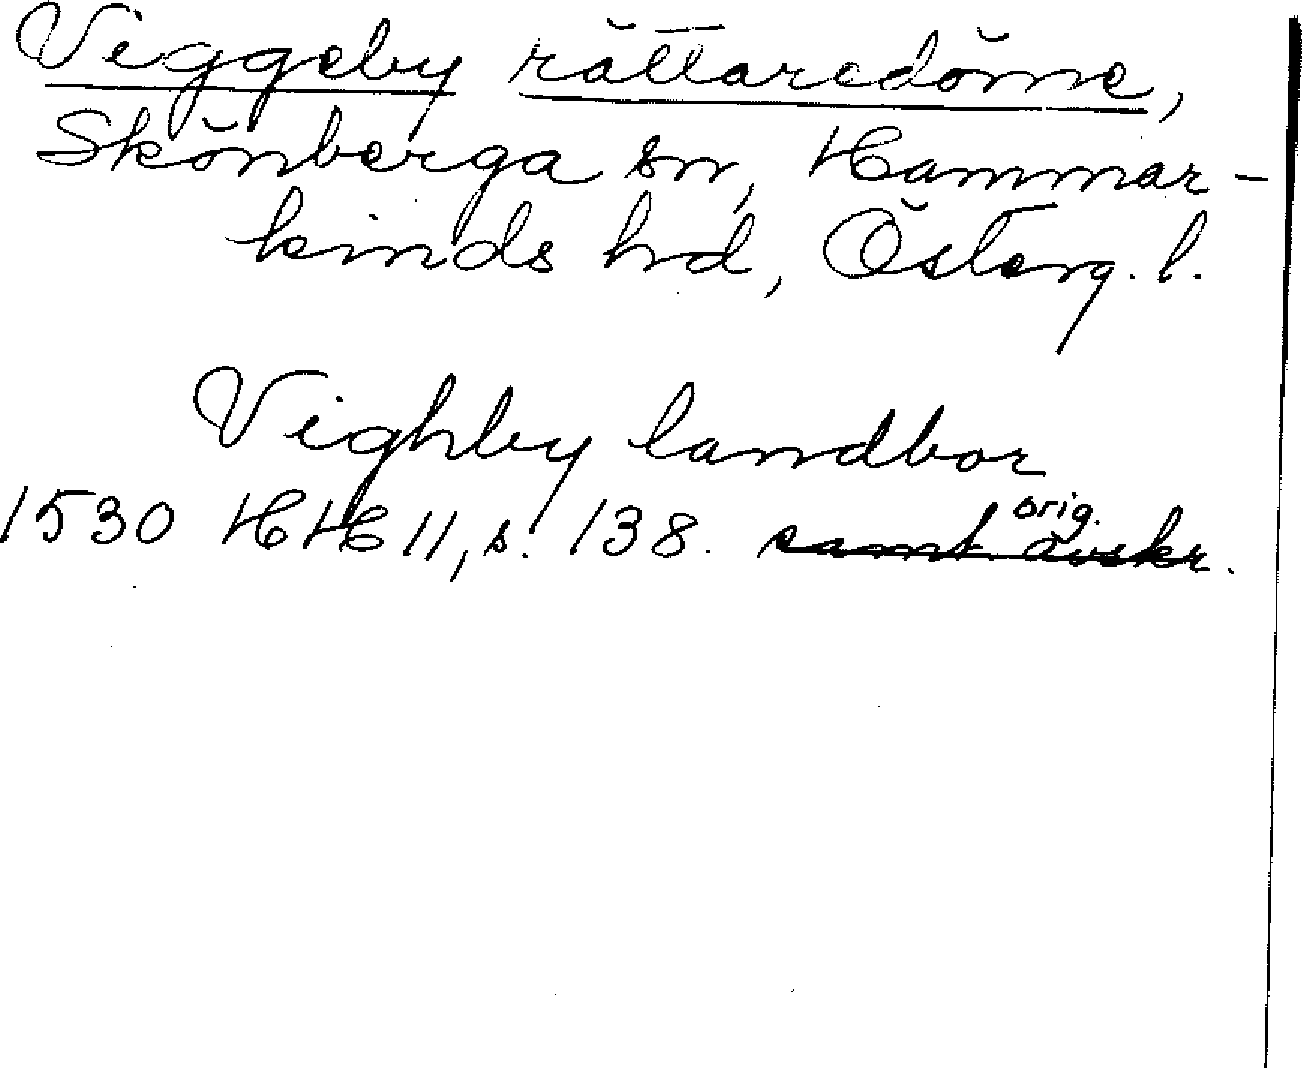 Viggeby rättaredöme,
Skönberga sn, Hammar-
kinds hd, Österg. l.
Vighby landbor
orig.
1530 HH 11, s. 138. samt avskr.